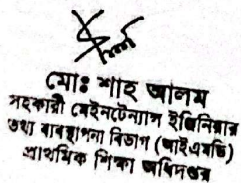 মোঃ শাহ আলম
সহকারী মেইনটেন্যান্স ইঞ্জিনিয়ার
তথ্য ব্যবস্থাপনা বিভাগ (আইএমডি)
প্রাথমিক শিক্ষা অধিদপ্তর